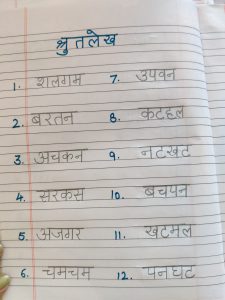 श्रुतलेख
1. शलगम 7. उपवन
2. बरतन 8. कटहल
3. अचकन 9. नटखट
4. सरकस 10. बचपन
5. अजगर 11. खटमल
6. चमचम 12. पनघट